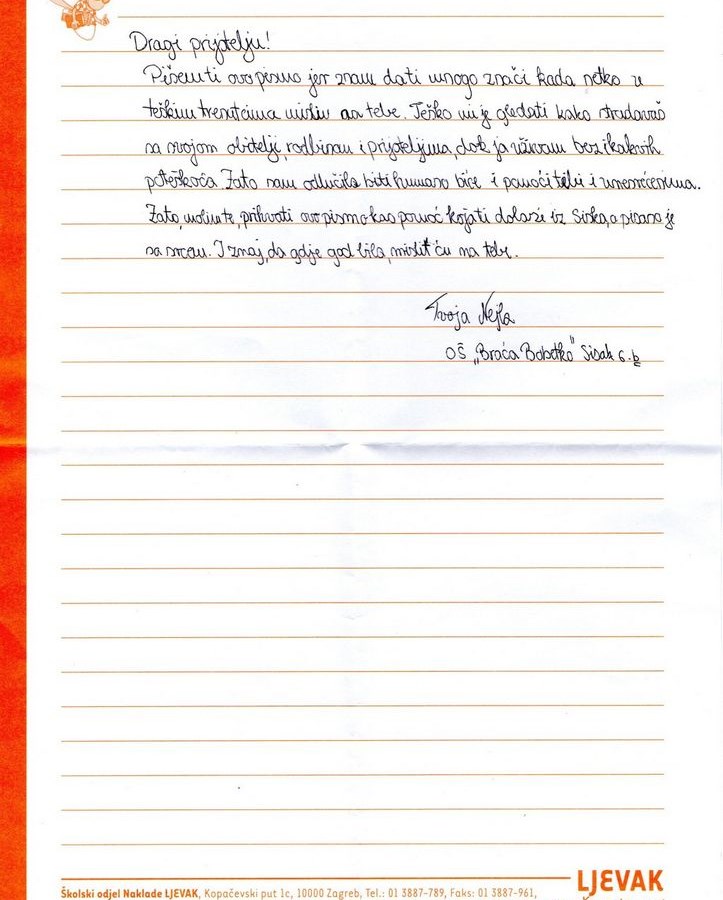 Dragi prijatelju!
Pišem ti ovo pismo jer znam da ti mnogo znači kada netko u
teškim trenutcima misli na tebe. Teško mi je gledati kako stradavaš
sa svojom obitelji, rodbinom i prijateljima, dok ja uživam bez ikakvih
poteškoća. Zato sam odlučila biti humano biće i pomoći tebi i unesrećenima.
Zato, molim te, prihvati ovo pismo kao pomoć koja ti dolazi iz Siska, a pisano je
sa srcem. I znaj, da gdje god bila, mislit ću na tebe.
Tvoja Nejla
OŠ „Braća Bobetko" Sisak 6.b
LJEVAK
Školski odjel Naklade LJEVAK, Kopačevski put 1c, 10000 Zagreb, Tel.: 01 3887-789, Faks: 01 3887-961,